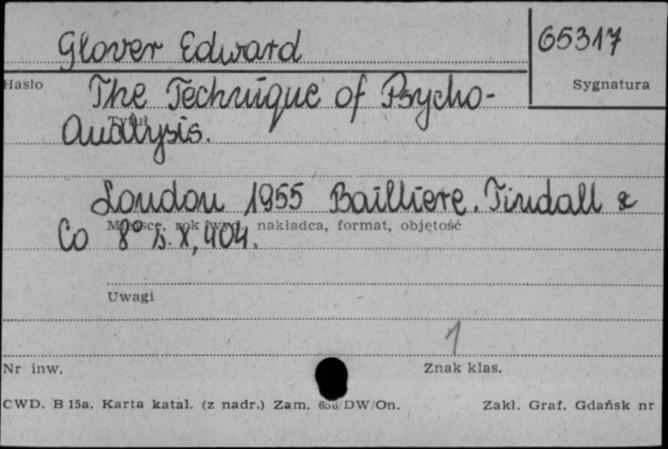 Glover Edward
65317
Hasło
The Technique of Psycho-
Sygnatura
Tytuł
Analysis.
London 1955 Bailliere. Tindall &
Miejsce, rok wyd., nakładca, format, objętość
Co 8° s. X, 404.
Uwagi
1
Nr inw.
Znak klas.
CWD. B 15a. Karta katal. (z nadr.) Zam. /DW/On.
Zakł. Graf. Gdańsk nr